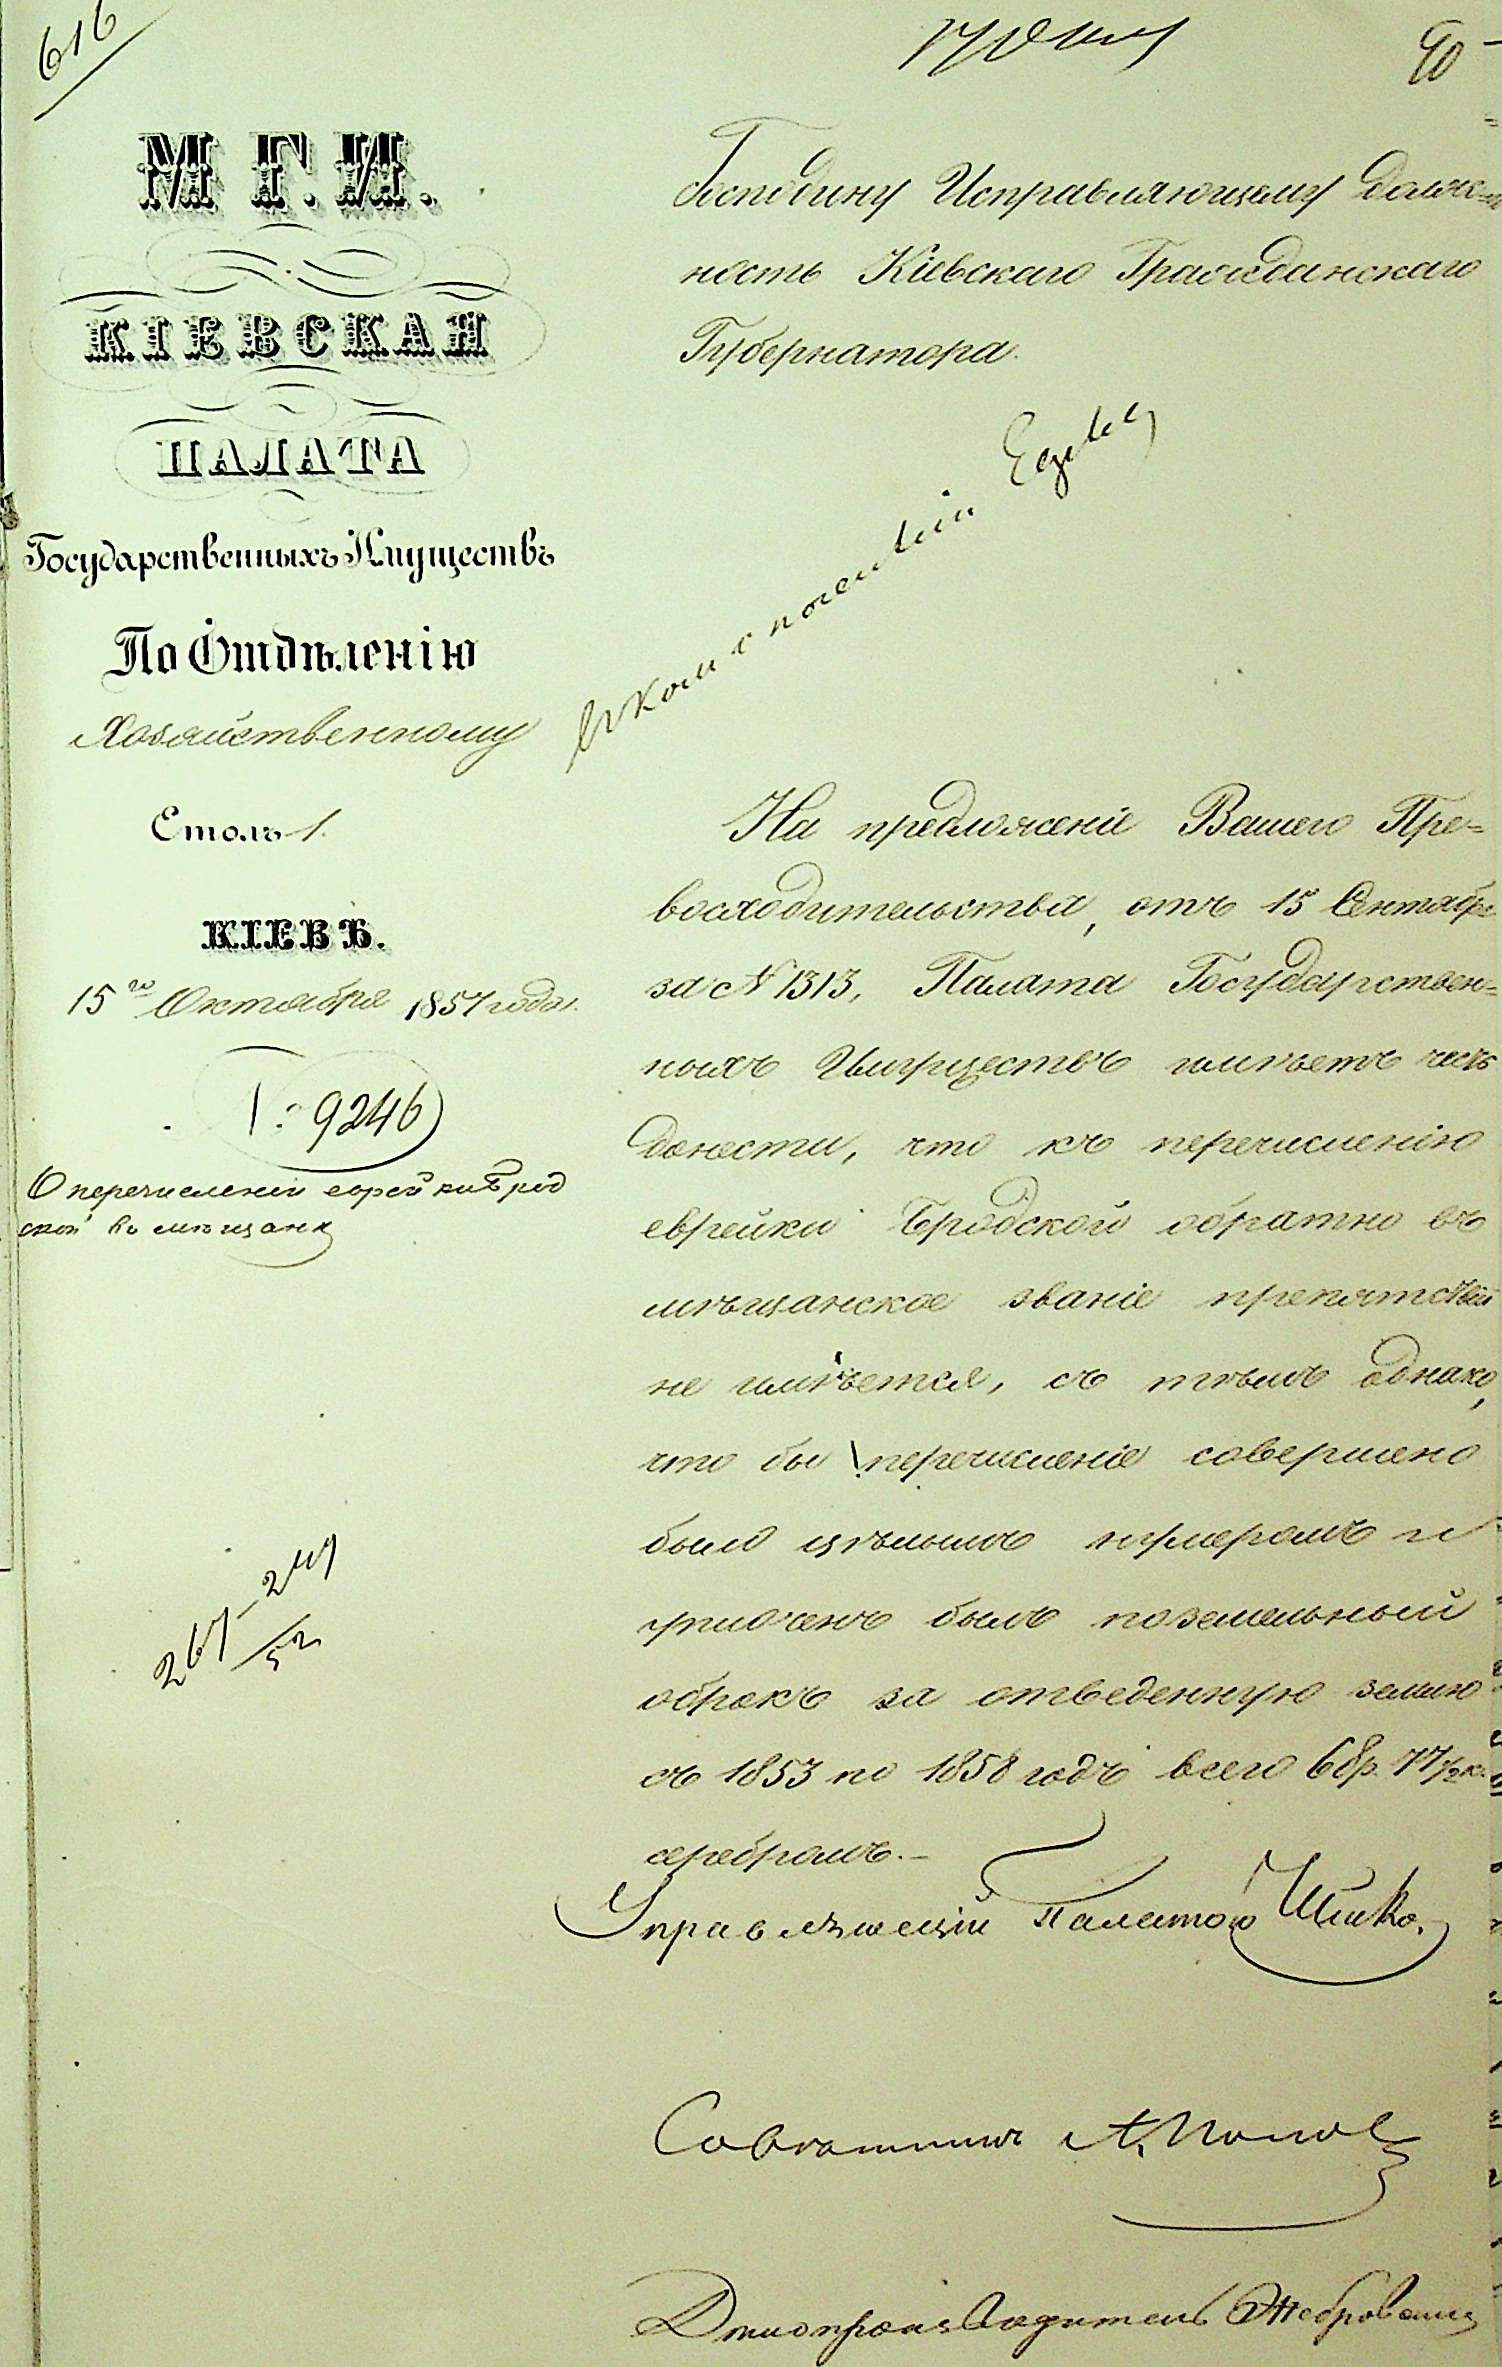 616
90
М Г. И.
КІЕВСКАЯ
ПАЛАТА
Государственныхъ Имуществъ
По Отдѣленію
Хозяйственному
Столъ 1.
КІЕВЪ.
15го Октября 1857 года.
9246
О перечисленіи еврейки Брод
ской въ мѣщанки
267-247
52
Господину Исправляющему долж=
ность Кіевскаго Гражданскаго
Губернатора.
На предложеніе Вашего Пре=
восходительства, отъ 15 Сентября
за № 1313, Палата Государствен=
ныхъ Имуществъ имѣетъ честь
донести, что къ перечисленію
еврейки Бродской обратно въ
мѣщанское званіе препятствій
не имѣется, съ тѣмъ однако,
что бы перечисленіе совершено
было цѣлымъ нумеромъ и
уплоченъ былъ поземельный
оброкъ за отведенную землю
съ 1853 по 1858 годъ всего 68 р. 77½ к.
серебромъ.-
Управляющій Палатою
Совѣтникъ А. Попов
Дѣлопроизводитель Жебровскій